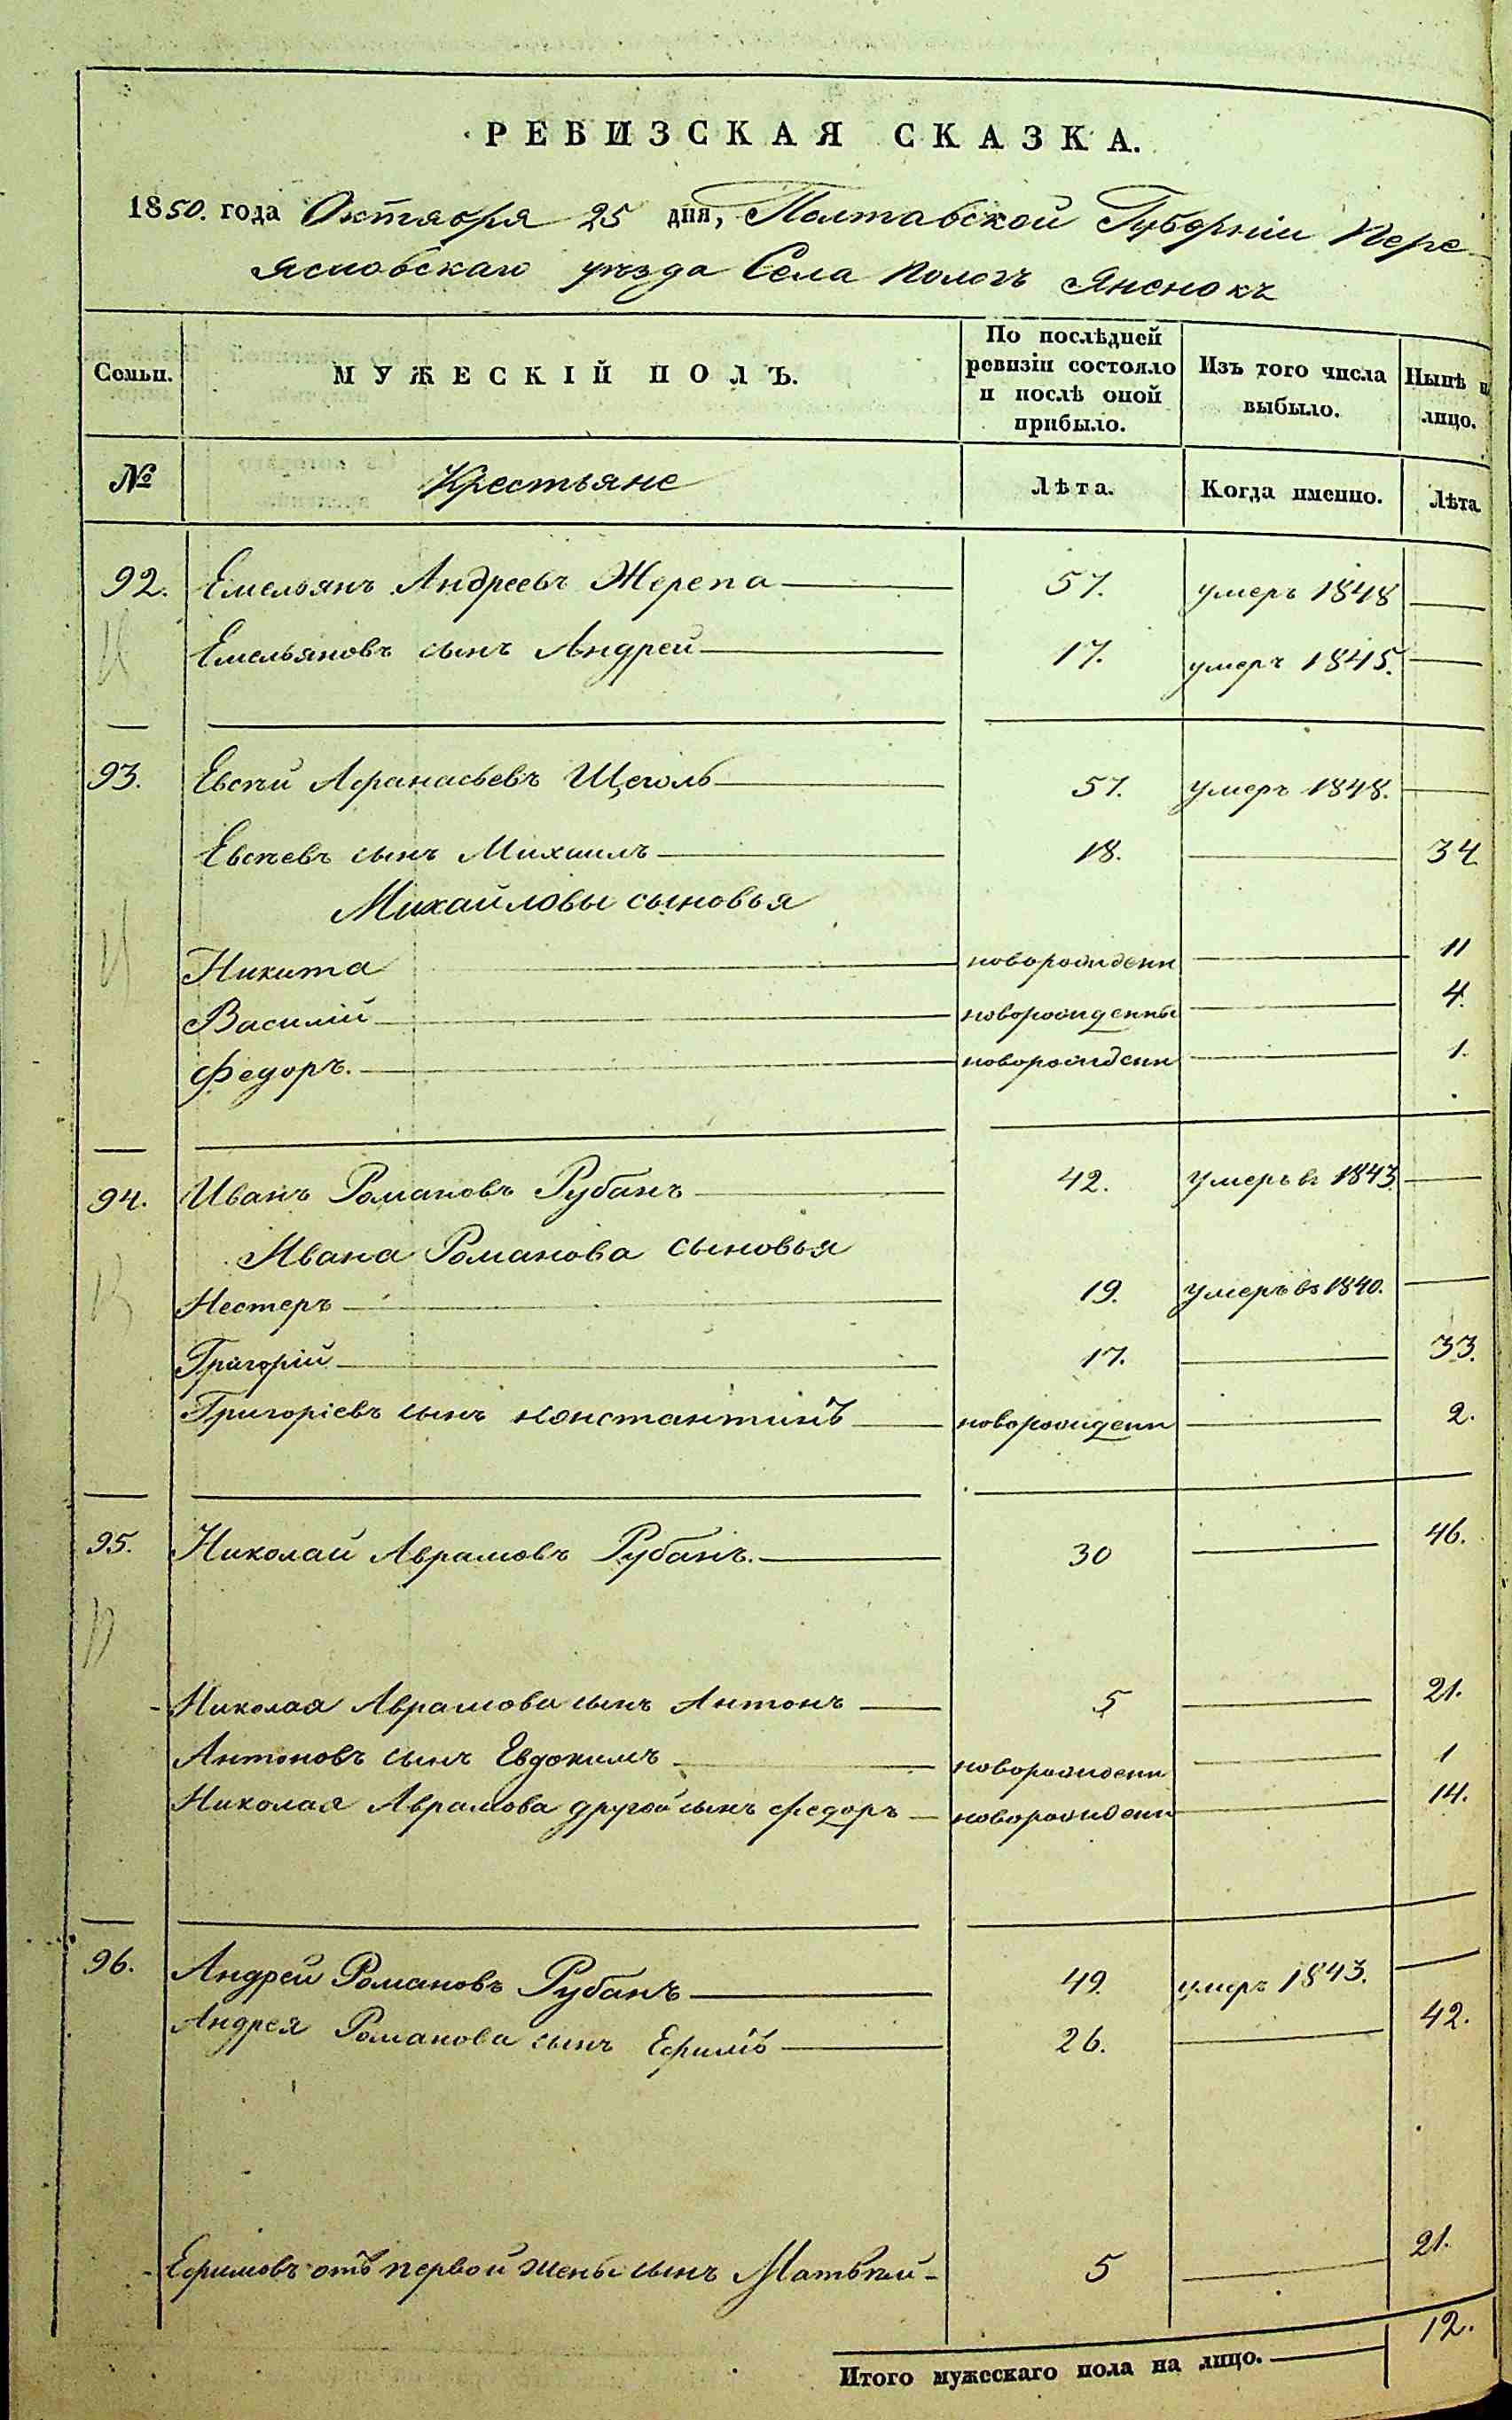 РЕВИЗСКАЯ СКАЗКА.
1850. года Октября 25 дня, Полтавской Губерніи Пере-
яславскаго уѣзда Села Пологъ Яненокъ
Семьи. МУЖЕСКІЙ ПОЛЪ. По послѣдней ревизіи состояло и послѣ оной прибыло. Изъ того числа выбыло. Нынѣ н лицо.
№ Крестьяне Лѣта. Когда именно. Лѣта
92. Емельянъ Андреевъ Жерепа 57. умеръ 1848
Емельяновъ сынъ Андрей 17. умеръ 1845.
93. Евсѣй Афанасьевъ Щеголь 57. умеръ 1848.
Евсѣевъ сынъ Михаилъ 18. 34
Михайловы сыновья
Никита новорожденн 11
Василій новорожденны 4.
Федоръ. новорожденн 1.
94. Иванъ Романовъ Рубанъ 42. умеръ въ 1843.
Ивана Романова сыновья
Нестеръ 19. умеръ въ 1840.
Григорій 17. 33.
Григоріевъ сынъ Константинъ новорожденн 2.
95. Николай Аврамовъ Рубанъ. 30 46.
Николая Аврамова сынъ Антонъ 5 21.
Антоновъ сынъ Евдокимъ новорожденн 1
Николая Аврамова другой сынъ Федоръ новорожденн 14.
96. Андрей Романовъ Рубанъ 49. умеръ 1843.
Андрея Романова сынъ Ефимъ 26. 42.
Ефимовъ отъ первой жены сынъ Матвѣй 5 21.
Итого мужескаго пола на лицо. 12.